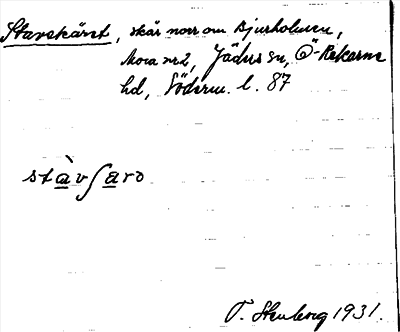 Stavskäret, skär norr om Djurholmen,
Mora nr 2, Jäders sn, Ö-Rekarne
hd, Söderm. l. 87
stàvʃaro
T. Stenberg 1931.